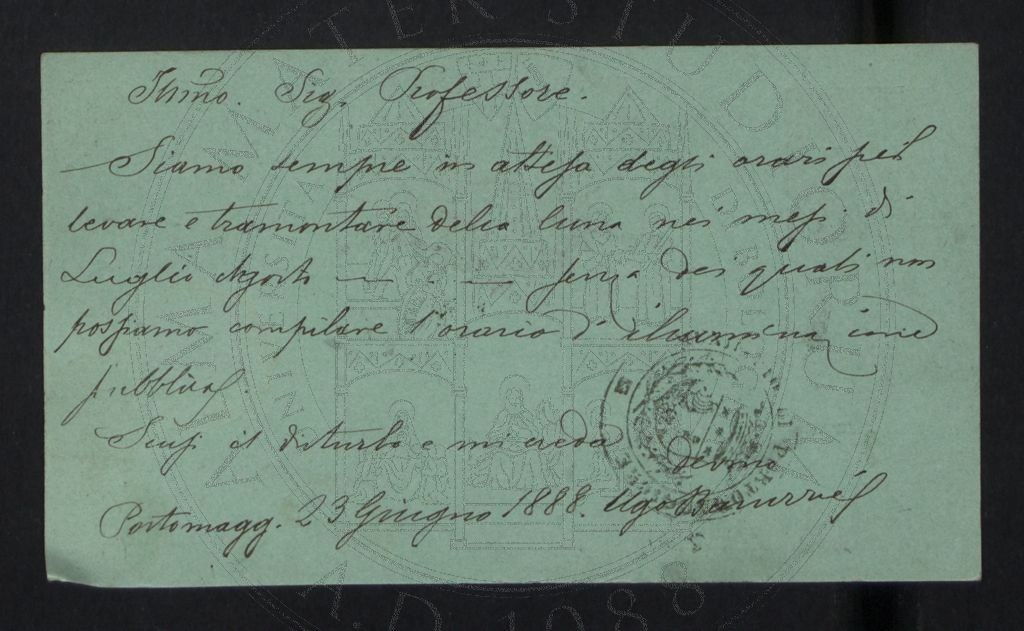 Illmo. Sig. Professore.
Siamo sempre in attesa degli orari pel
levare e tramontare della luna nei mesi di
Luglio Agosto — . — senza dei quali non
possiamo compilare l'orario d'illuminazione
pubblica.
Scusi il disturbo e mi creda devmo
Portomagg. 23 Giugno 1888. Ugo
ALMA MATER STUDIORUM
A.D. 1088